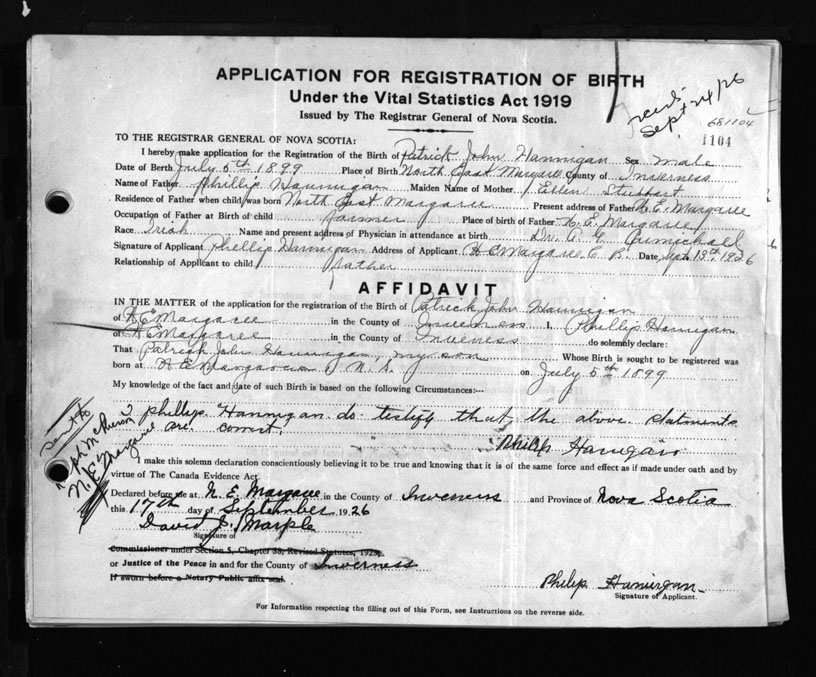 APPLICATION FOR REGISTRATION OF BIRTH
Under the Vital Statistics Act 1919
Issued by The Registrar General of Nova Scotia.
Sept 24/26
681104
1104
TO THE REGISTRAR GENERAL OF NOVA SCOTIA:
I hereby make application for the Registration of the Birth of Patrick John Hannigan Sex male
Date of Birth July 5th 1899 Place of Birth North East Margaree County of Inverness
Name of Father Phillip Hannigan Maiden Name of Mother Ellen Stubbert
Residence of Father when child was born North East Margaree Present address of Father N.E. Margaree
Occupation of Father at Birth of child farmer Place of birth of Father N.E. Margaree
Race Irish Name and present address of Physician in attendance at birth Dr. A. G. Carmichael
Signature of Applicant Phillip Hannigan Address of Applicant N E Margaree C. B. Date Sept 13th 1926
Relationship of Applicant to child father
AFFIDAVIT
IN THE MATTER of the application for the registration of the Birth of Patrick John Hannigan
of N E Margaree in the County of Inverness I, Phillip Hannigan
of N E Margaree in the County of Inverness do solemnly declare:
That Patrick John Hannigan, my son Whose Birth is sought to be registered was
born at N E Margaree N. S. on July 5th 1899
My knowledge of the fact and date of such Birth is based on the following Circumstances:—
I phillip Hannigan do testify that the above statments
are correct.
Philip Hanigan
N. E Margaree
I make this solemn declaration conscientiously believing it to be true and knowing that it is of the same force and effect as if made under oath and by
virtue of The Canada Evidence Act.
Declared before me at N. E. Margaree in the County of Inverness and Province of Nova Scotia
this 17th day of September 1926
David J. Marple
Signature of
Commissioner under Section 5, Chapter 38, Revised Statutes, 1923,
or Justice of the Peace in and for the County of Inverness
If sworn before a Notary Public affix seal.
Philip Hanigan
Signature of Applicant.
For Information respecting the filling out of this Form, see Instructions on the reverse side.